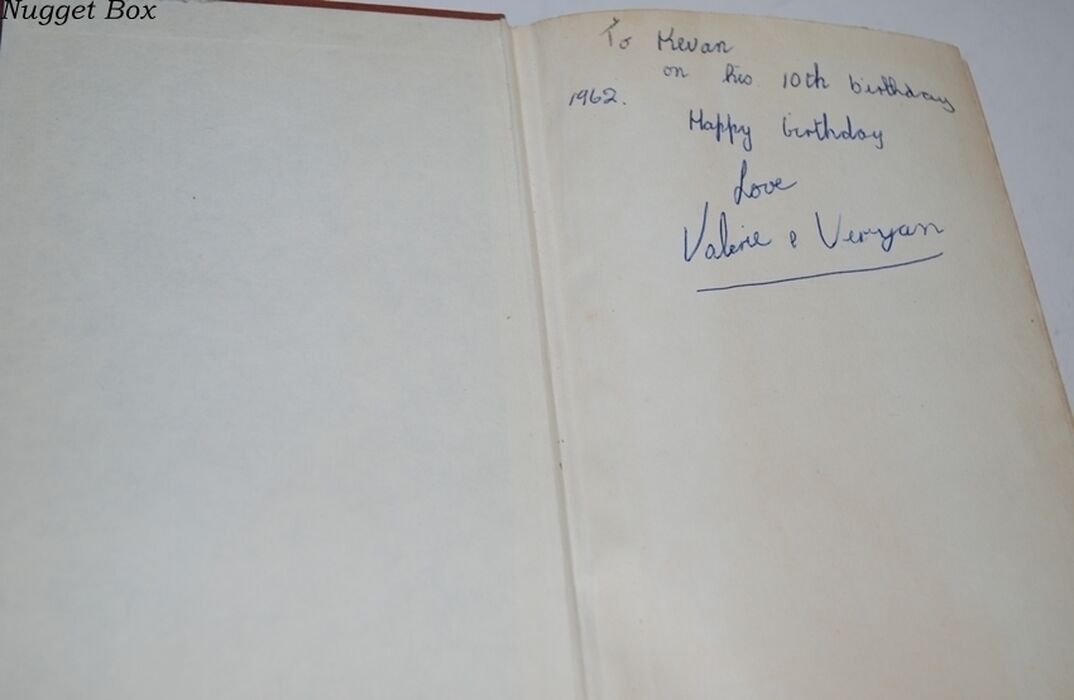 Nugget Box
To Kevan
on his 10th birthday
1962.
Happy birthday
Love
Valerie & Veryan